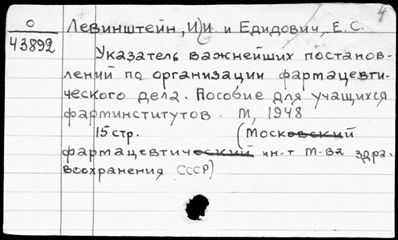 4
О Левинштейн, И.И и Едидович, Е.С.
43892
Указатель важнейших постанов-
лений по организации фармацевти-
ческого дела. Пособие для учащихся
фарминститутов. М, 1948
15 стр. (Московский
фармацевтический ин-т М-ва здра-
воохранения СССР)